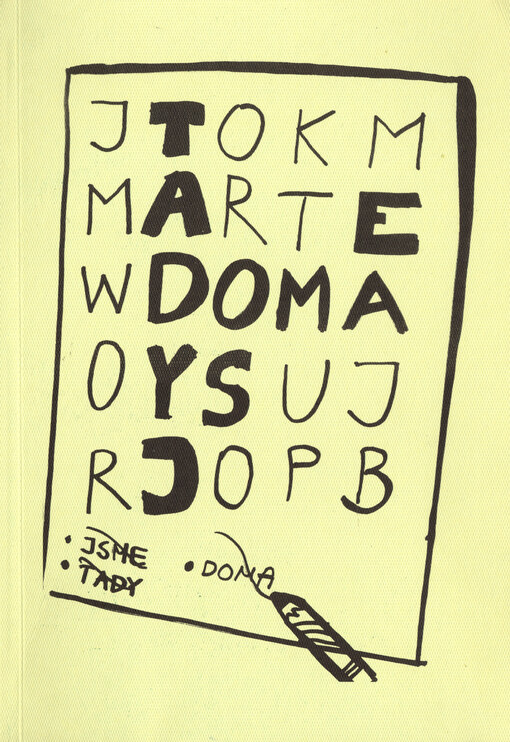 J T O K M
M A R T E
W D O M A
O Y S U J
R J O P B
• JSME • DOMA
• TADY